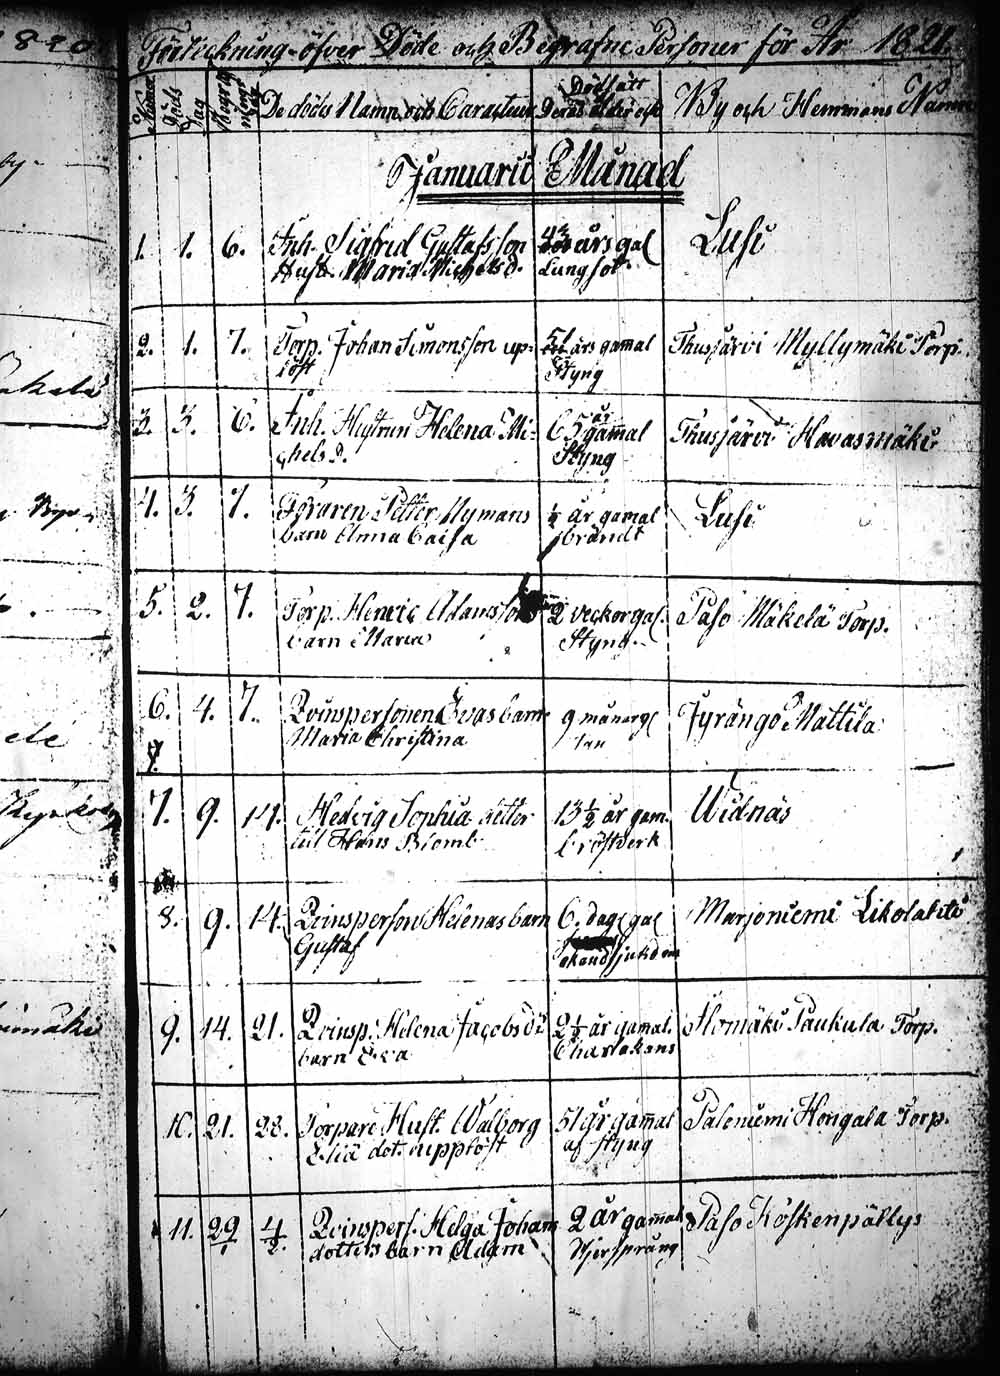 1820
Förteckning öfver Döde och Begrafne Personer för År 1821.
Numer Döds Dag Begrafnings De dödas Namn och Caracteur Dödssätt Deras ålder och By och Hemmans Namn
Januarii Månad
1. 1. 6. Inh. Sigfrid Gustafsson 43 års gal Lusi
Hust. Maria Michelsd. Lungsot
2. 1. 7. Torp. Johan Simonsson up- 51 års gamal Thusjärvi Myllymäki Torp.
löst Styng
3. 3. 6. Inh. Hustrun Helena Mi- 65 år gamal Thusjärvi Havasmäki
chels d. Styng
4. 3. 7. Petter Nymans ½ år gamal Lusi
barn Anna Caisa brandt
5. 2. 7. Torp. Henric Adamsson 2 veckor gal. Paso Mäkelä Torp.
barn Maria Styng
6. 4. 7. Qvinspersonen Evas barn 9 månar gl Jyrängö Mattila
Maria Christina
7. 9. 14. Hedvig Sophia detter 13 ½ år gam. Widnäs
till Hans Blomb bröstverk
8. 9. 14. Qvinsperson Helenas barn 6. dag gal Marjoniemi
Gustaf okänd sjukdom
9. 14. 21. Qvinsp. Helena Jacobs d: 2 ½ år gamal. Ilomäki Paukula Torp.
barn Eva Charlakans
10. 21. 28. Torpare Hust. Walborg 51 år gammal Paloniemi Hongala Torp.
Elia dot. upplöst af styng
11. 29/1 4/2. Qvinspers. Helga Johans 2 år gammal Paso Koskenpällys
dotters barn Adam